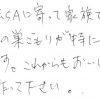 SAに寄って家族で
の巣ごもりが特に
す。これからもおいし
作って下さい。